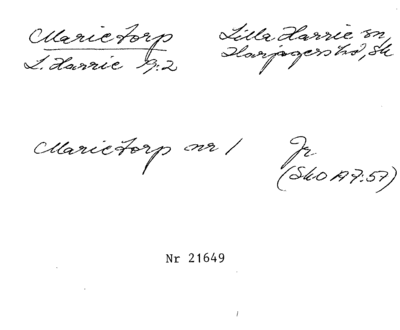 Marietorp Lilla Harrie sn,
L. Harrie 9:2 Harjagers hd, Sk
Marietorp nr 1 Jr
(SkO A7:57)
Nr 21649